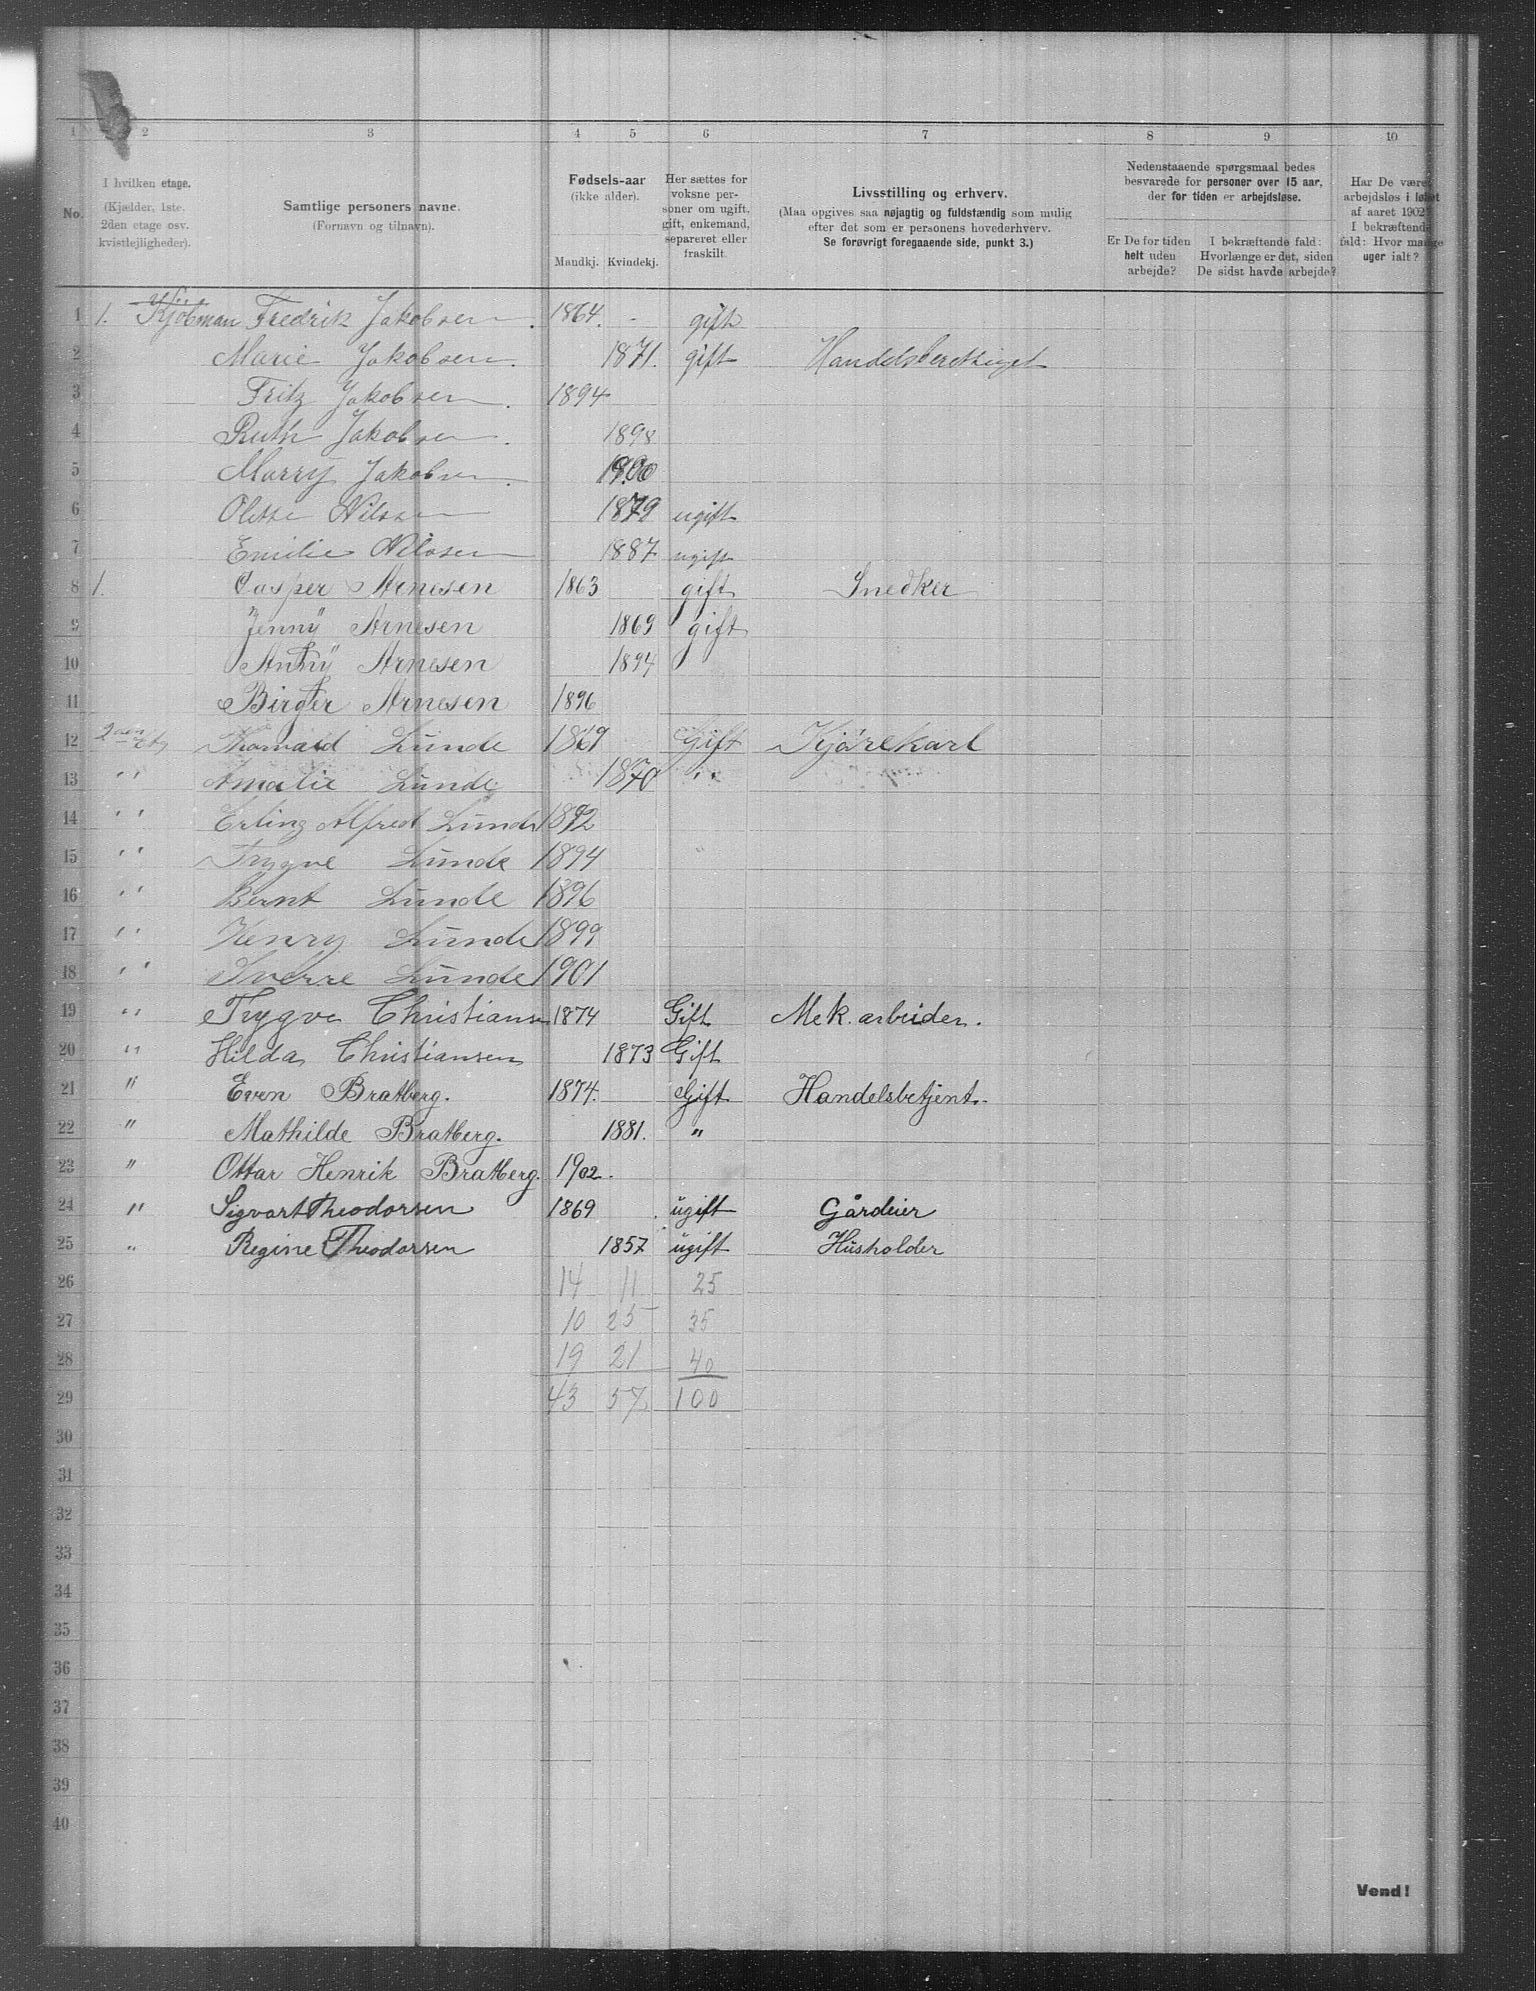 1 2 3 4 5 6 7 8 9 10
No.
I hvilken etage.
(Kjælder, 1ste.
2den etage osv.
kvistlejligheder).
Samtlige personers navne.
(Fornavn og tilnavn).
Fødsels-aar
(ikke alder).
Mandkj. Kvindekj.
Her sættes for
voksne per-
soner om ugift,
gift, enkemand,
separeret eller
fraskilt.
Livsstilling og erhverv.
(Maa opgives saa nøjagtig og fuldstændig som mulig
efter det som er personens hovederhverv.
Se forøvrigt foregaaende side, punkt 3.)
Nedenstaaende spørgsmaal bedes
besvarede for personer over 15 aar,
der for tiden er arbejdsløse.
Er De for tiden
helt uden
arbejde?
I bekræftende fald:
Hvorlænge er det, siden
De sidst havde arbejde?
Har De været
arbejdsløs i løbet
af aaret 1902?
I bekræftende
fald: Hvor mange
uger ialt?
1 1. Kjöbman Fredrik Jakobsen. 1864. - gift
2 Marie Jakobsen. 1871. gift Handelsberettiget
3 Fritz Jakobsen. 1894
4 Ruth Jakobsen. 1898
5 Marry Jakobsen. 1900
6 Olette Nilsen 1879 ugift
7 Emilie Nilsen 1887 ugift
8 1. Casper Arnesen 1863 gift Snedker
9 Jenny Arnesen 1869 gift
10 Anny Arnesen 1894
11 Birger Arnesen 1896
12 2den etg Thorvald Lunde 1869 Gift Kjørekarl
13 " Amalie Lunde 1870 "
14 " Erling Alfred Lunde 1892
15 " Trygve Lunde 1894
16 " Bernt Lunde 1896
17 " Henry Lunde 1899
18 " Sverre Lunde 1901
19 " Trygve Christiansen 1874 Gift Mek. arbeider.
20 " Hilda Christiansen 1873 Gift
21 " Even Bratberg. 1874. Gift Handelsbetjent.
22 " Mathilde Bratberg. 1881. "
23 " Ottar Henrik Bratberg. 1902.
24 " Sigvart Theodorsen 1869 ugift Gårdeier
25 " Regine Theodorsen 1857 ugift Husholder
26 14 11 25
27 10 25 35
28 19 21 40
29 43 57 100
30
31
32
33
34
35
36
37
38
39
40
Vend!